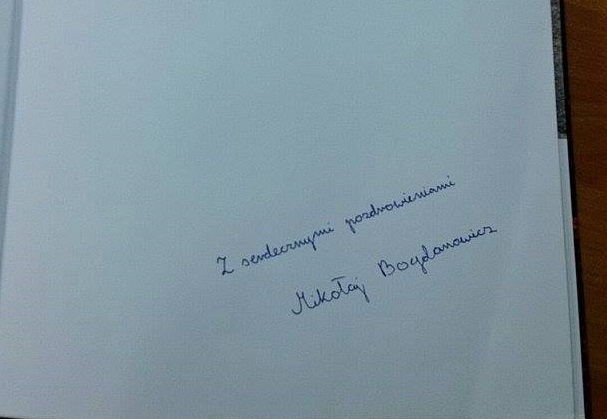 Z serdecznymi pozdrowieniami
Mikołaj Bogdanowicz